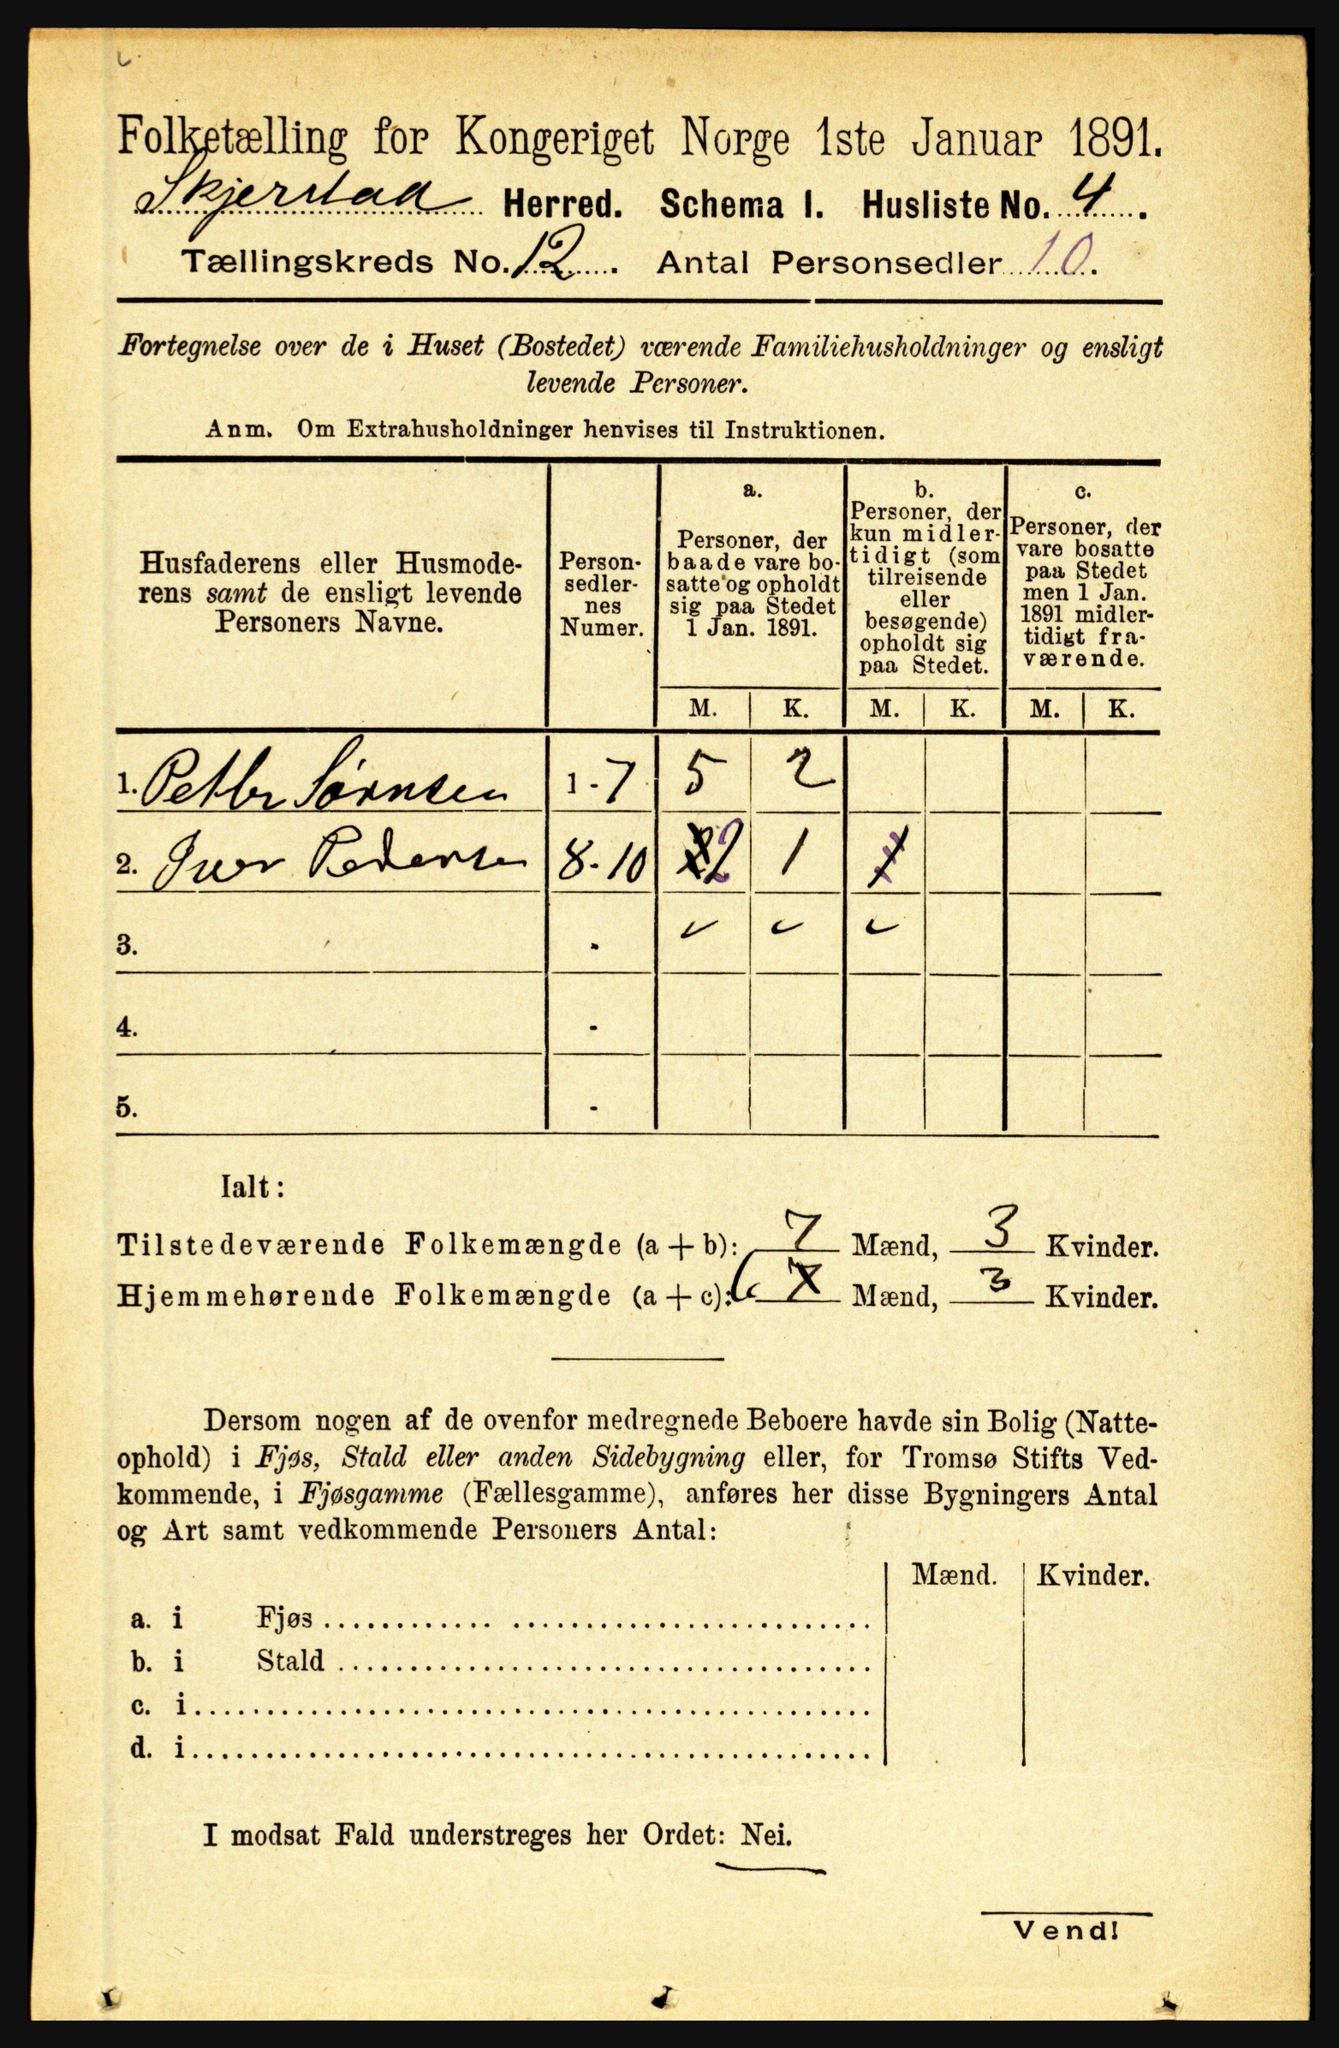 Folketælling for Kongeriget Norge 1ste Januar 1891.
Skjerstad Herred. Schema I. Husliste No. 4.
Tællingskreds No. 12. Antal Personsedler 10.
Fortegnelse over de i Huset (Bostedet) værende Familiehusholdninger og ensligt
levende Personer.
Anm. Om Extrahusholdninger henvises til Instruktionen.
Husfaderens eller Husmode-
rens samt de ensligt levende
Personers Navne.
Person-
sedler-
nes
Numer.
a.
Personer, der
baade vare bo-
satte og opholdt
sig paa Stedet
1 Jan. 1891.
b.
Personer, der
kun midler-
tidigt (som
tilreisende
eller
besøgende)
opholdt sig
paa Stedet.
c.
Personer, der
vare bosatte
paa Stedet
men 1 Jan.
1891 midler-
tidigt fra-
værende.
M. K. M. K. M. K.
1. Petter Sørnsen 1-7 5 2
2. Iver Pedersen 8-10 2 1
3. -
4. -
5. -
Ialt:
Tilstedeværende Folkemængde (a + b): 7 Mænd, 3 Kvinder.
Hjemmehørende Folkemængde (a + c): 7 Mænd, 3 Kvinder.
Dersom nogen af de ovenfor medregnede Beboere havde sin Bolig (Natte-
ophold) i Fjøs, Stald eller anden Sidebygning eller, for Tromsø Stifts Ved-
kommende, i Fjøsgamme (Fællesgamme), anføres her disse Bygningers Antal
og Art samt vedkommende Personers Antal:
Mænd. Kvinder.
a. i Fjøs
b. i Stald
c. i
d. i
I modsat Fald understreges her Ordet: Nei.
Vend!